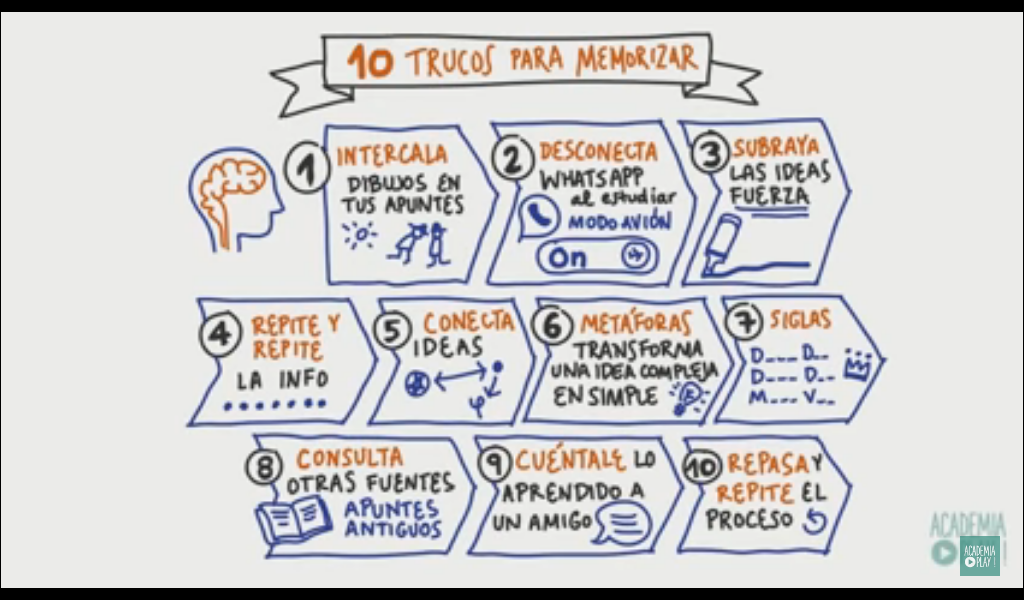 10 TRUCOS PARA MEMORIZAR
1 INTERCALA
DIBUJOS EN
TUS APUNTES
2 DESCONECTA
WHATSAPP
al estudiar
MODO AVIÓN
On
3 SUBRAYA
LAS IDEAS
FUERZA
4 REPITE Y
REPITE
LA INFO
5 CONECTA
IDEAS
6 METÁFORAS
TRANSFORMA
UNA IDEA COMPLEJA
EN SIMPLE
7 SIGLAS
D--- D--
D--- D--
M--- V--
8 CONSULTA
OTRAS FUENTES
APUNTES
ANTIGUOS
9 CUÉNTALE LO
APRENDIDO A
UN AMIGO
10 REPASA Y
REPITE EL
PROCESO
ACADEMIA
ACADEMIA
PLAY!